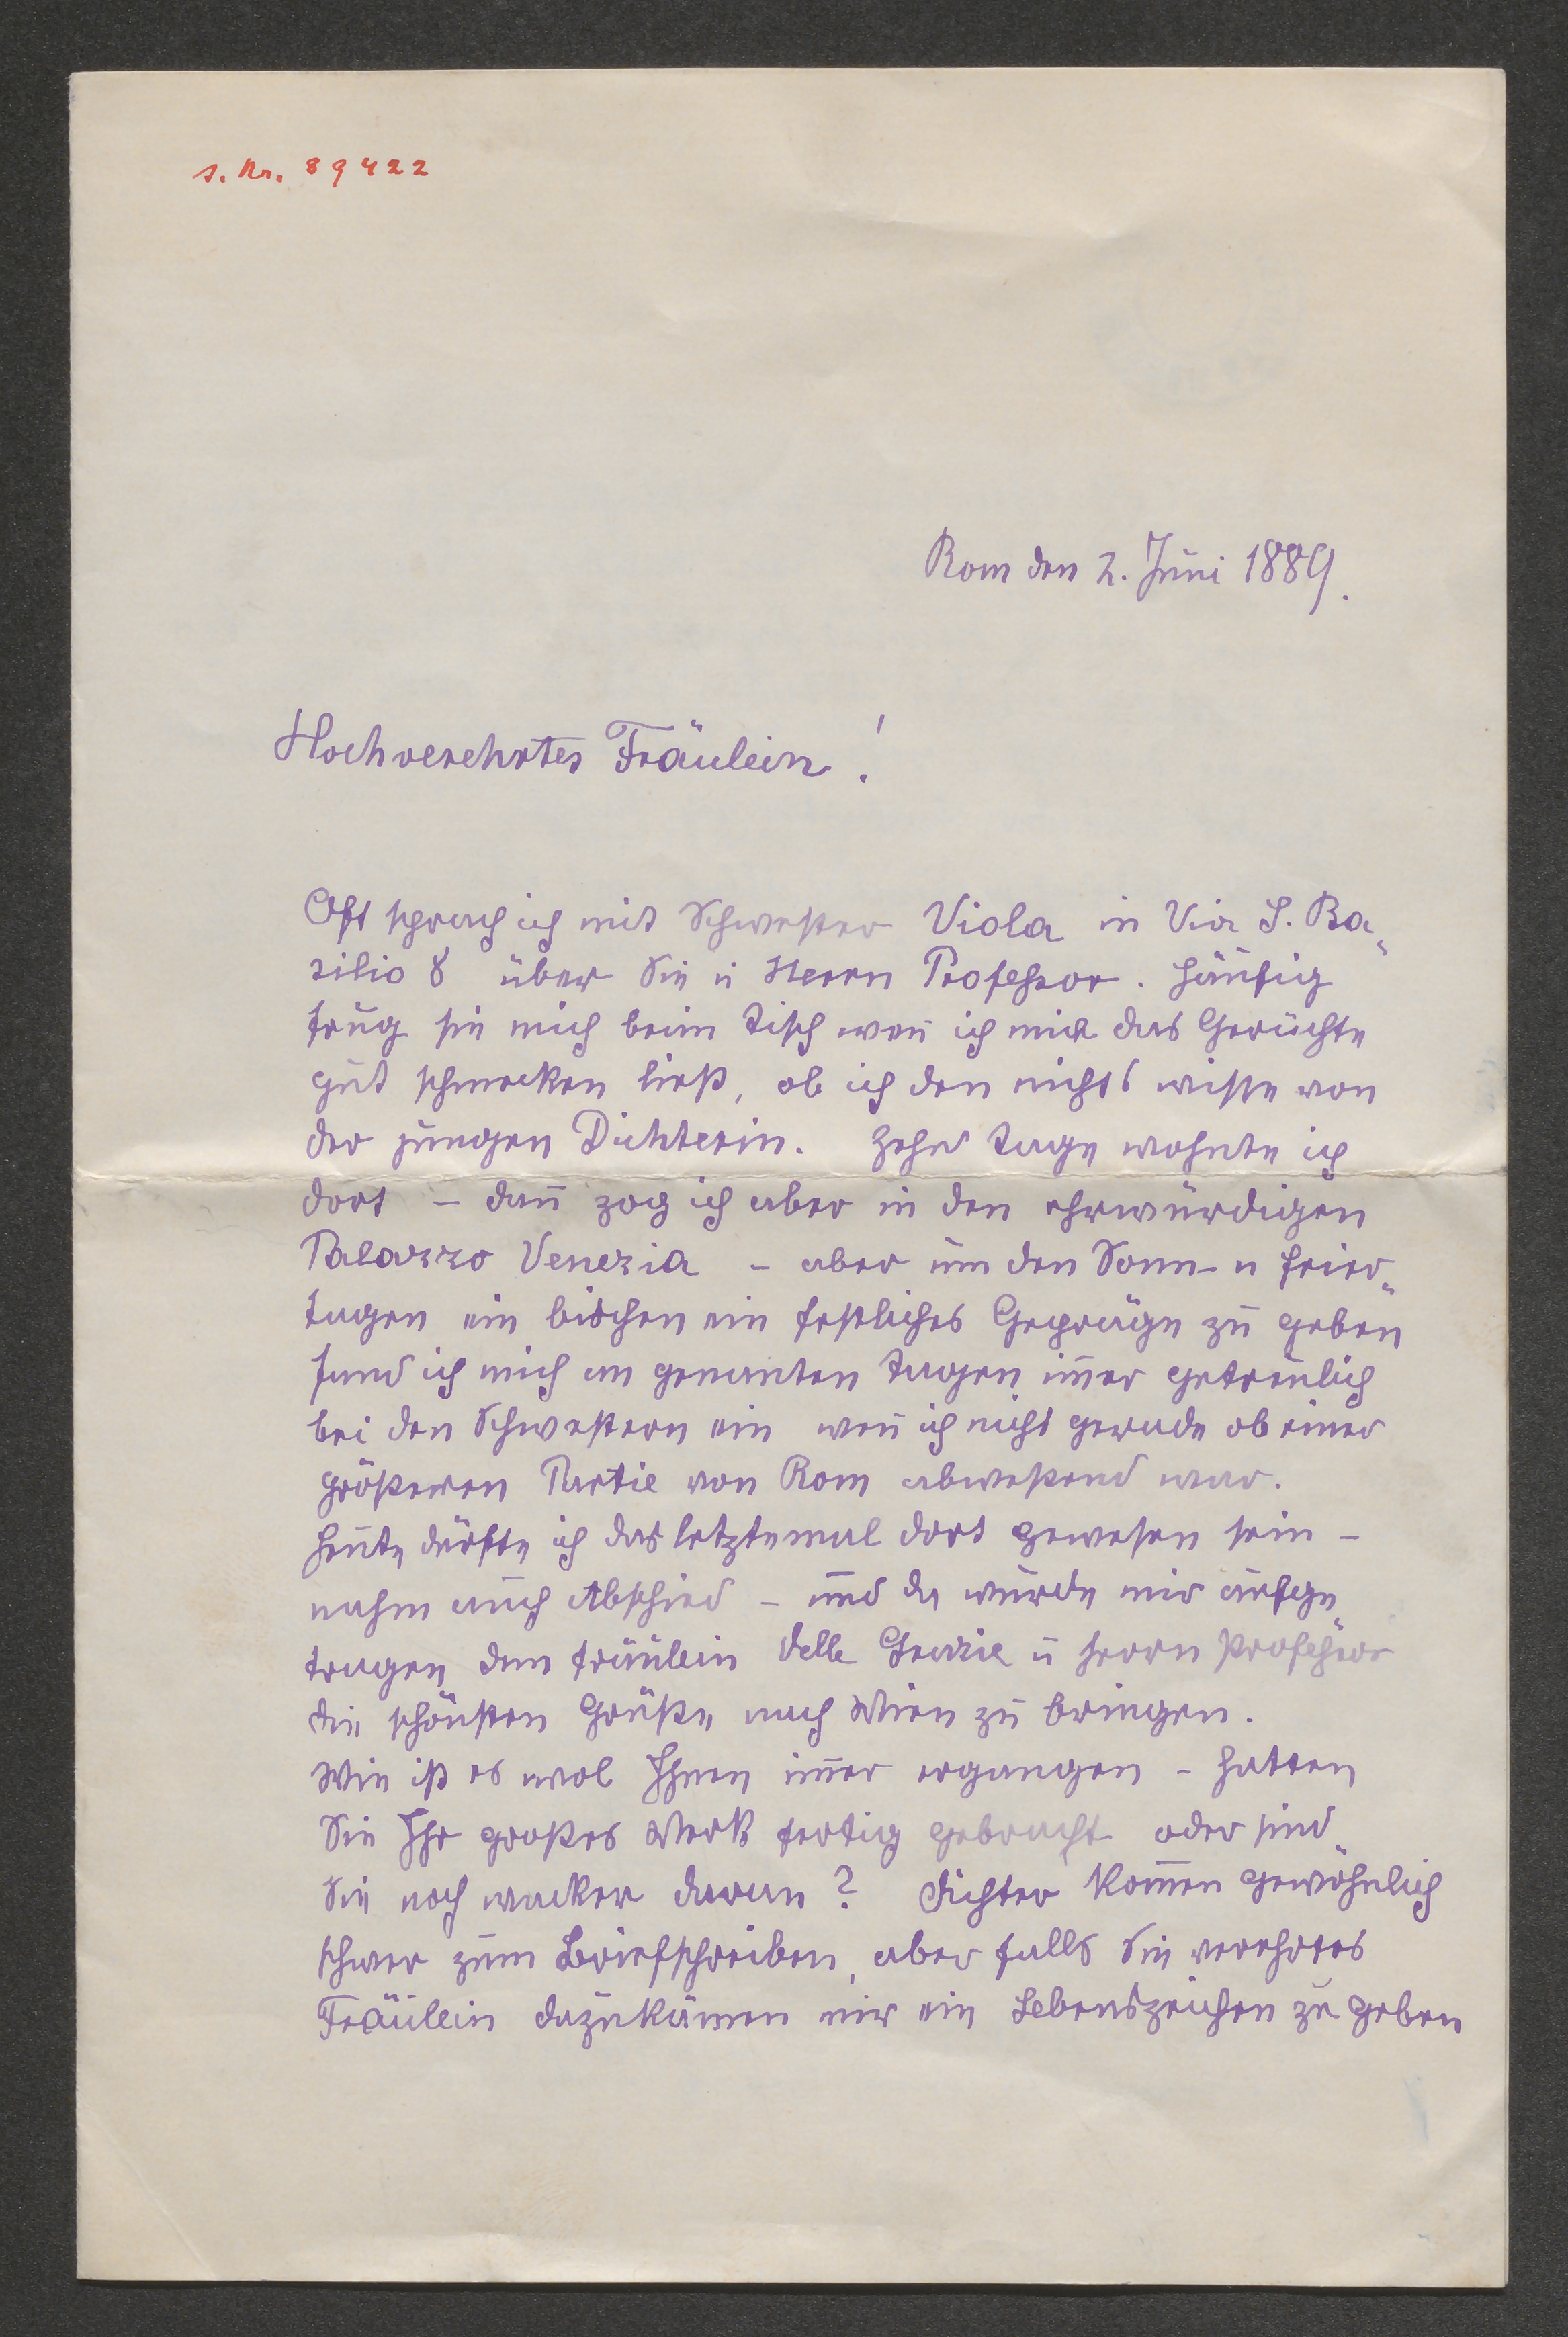 s. Nr. 89422
Rom den 2. Juni 1889.
Hochverehrtes Fräulein!
Oft sprach ich mit Schwester Viola in Via S. Ba„
silio 8 über Sie u Herrn Professor. Häufig
frug sie mich beim Tisch weñ ich mir das Gerüchte
gut schmecken ließ, ob ich den nichts wisse von
der jungen Dichterin. Zehn Tage wohnte ich
dort – dañ zog ich aber in den ehrwürdigen
Palazzo Venezia – aber um den Sonn- u Feier„
tagen ein bischen ein festliches Gepräge zu geben
fand ich mich an genanten Tagen im̄er getreulich
bei den Schwestern ein weñ ich nicht gerade ob einer
größeren Partie von Rom abweßend war.
Heute dürfte ich das letztemal dort gewesen sein –
nahm auch Abschied – und da wurde mir aufge„
tragen dem Fräulein delle Grazie u Herrn Professor
die schönsten Grüße nach Wien zu bringen.
Wie ist es wol Ihnen im̄er ergangen – hatten
Sie Ihr großes Werk fertig gebracht oder sind
Sie noch wacker daran? Dichter kom̄en gewöhnlich
schwer zum Briefschreiben, aber falls Sie verehrtes
Fräulein dazukämen mir ein Lebenszeichen zu geben